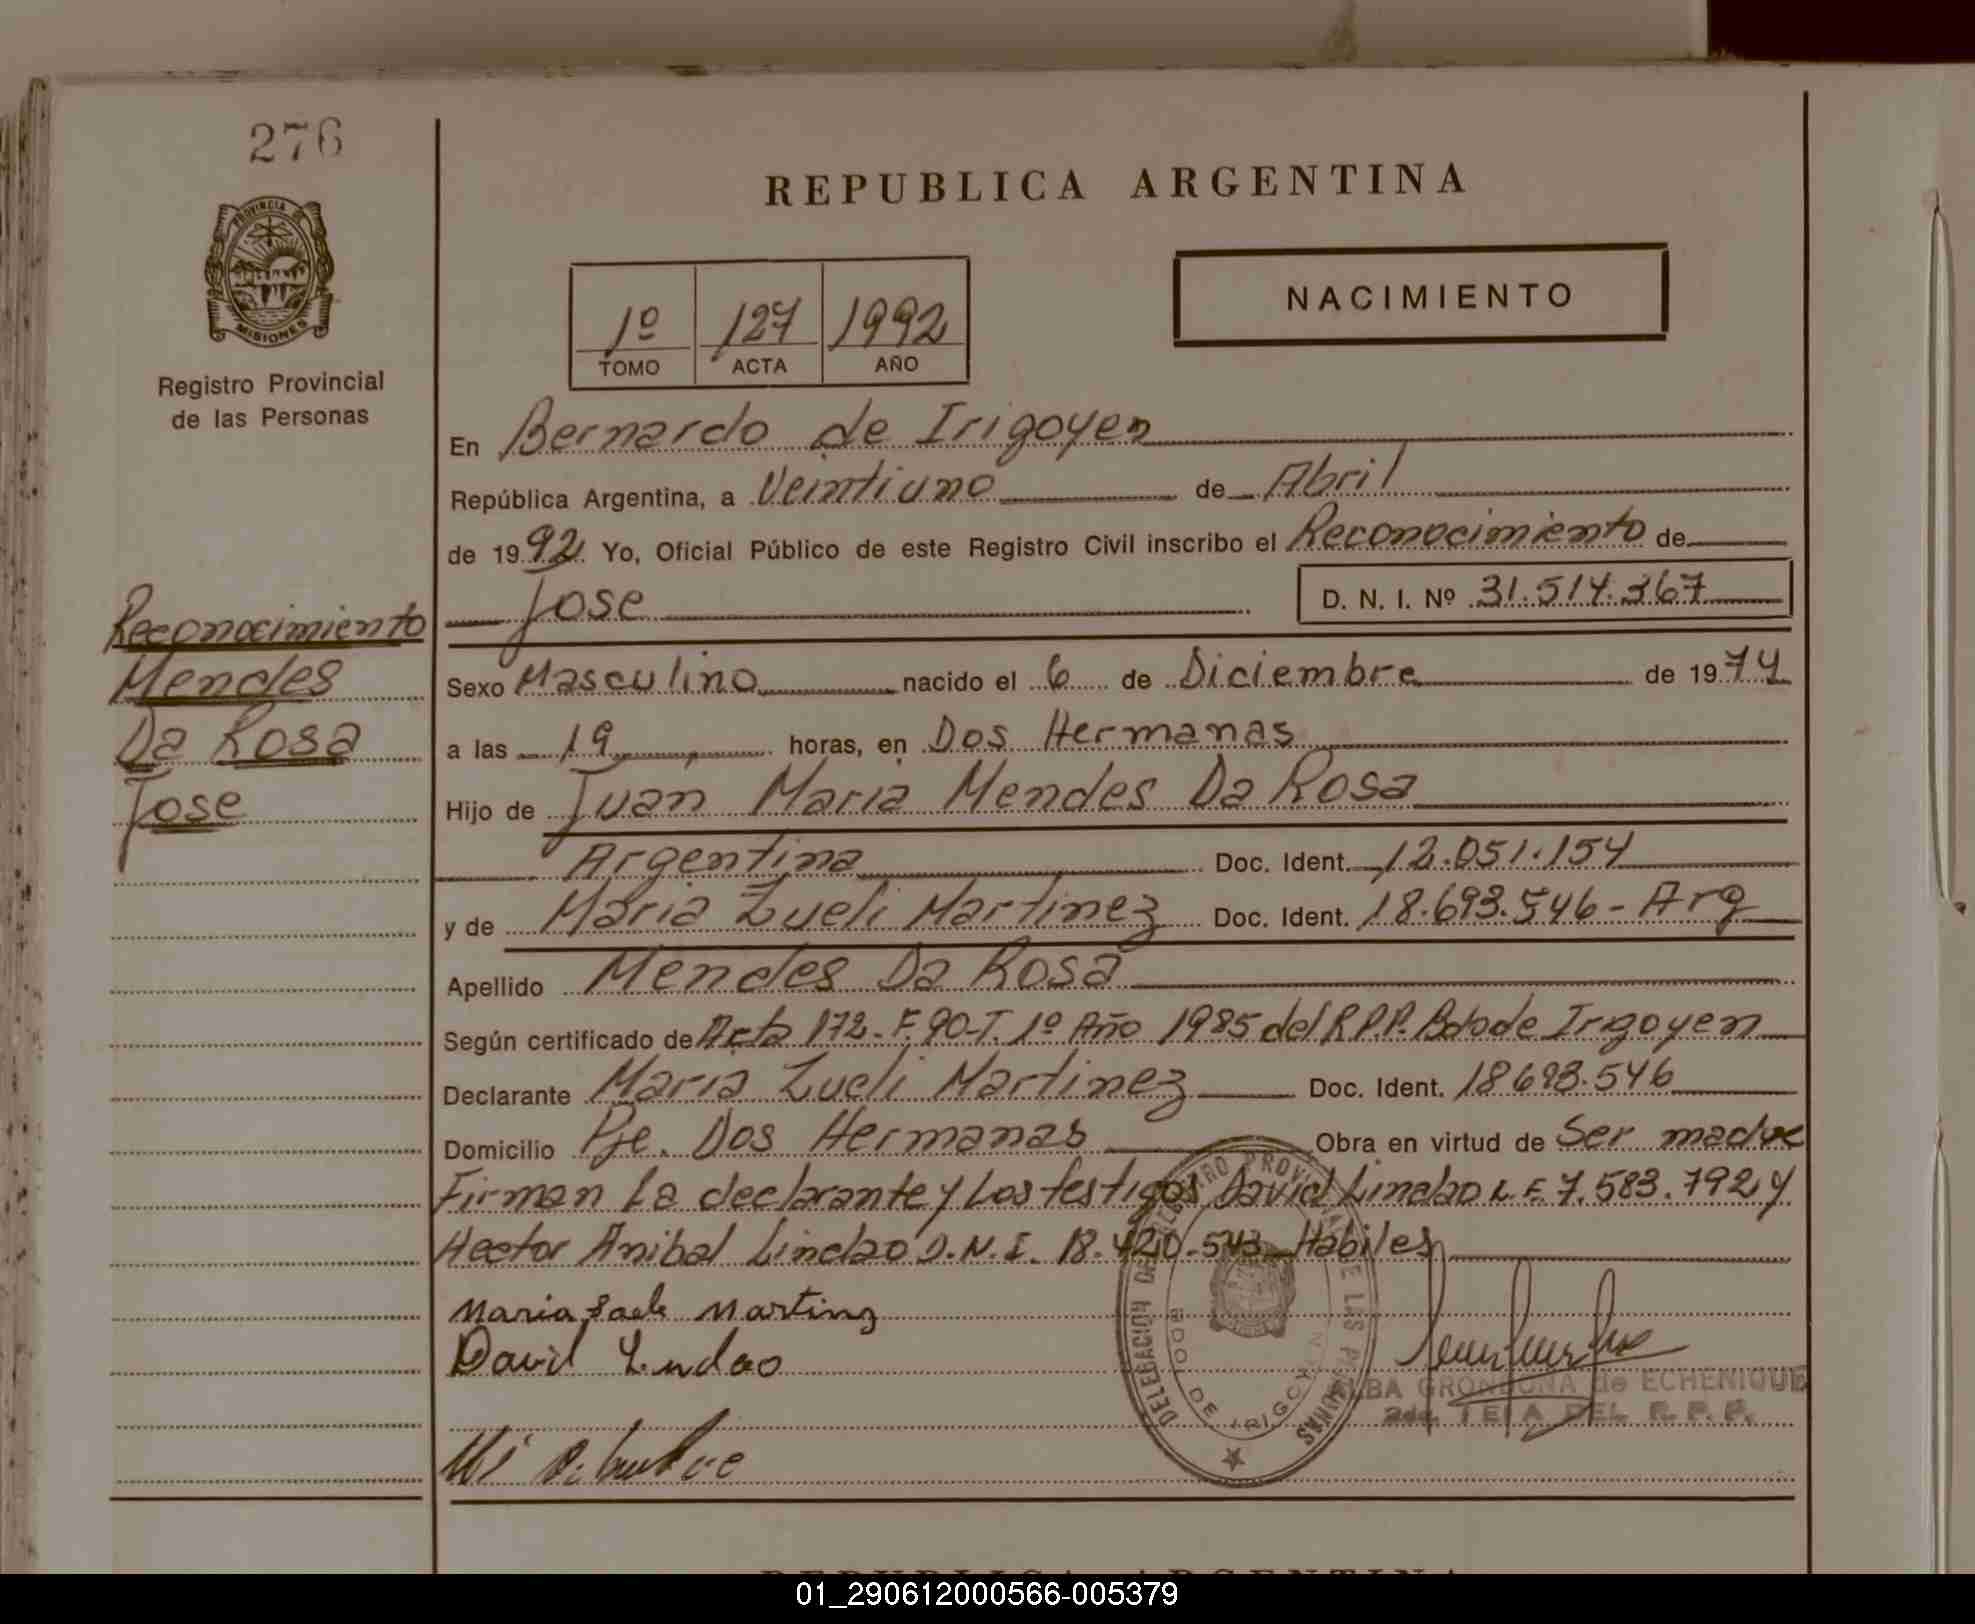 276
PROVINCIA DE
MISIONES
Registro Provincial
de las Personas
REPUBLICA ARGENTINA
1º 127 1992
TOMO ACTA AÑO
NACIMIENTO
En Bernardo de Irigoyen
República Argentina, a Veintiuno de Abril
de 1992 Yo, Oficial Público de este Registro Civil inscribo el Reconocimiento de
Jose D. N. I. Nº 31.514.367
Reconocimiento
Mendes
Da Rosa
Jose
Sexo Masculino nacido el 6 de Diciembre de 1974
a las 19 horas, en Dos Hermanas
Hijo de Juan Maria Mendes Da Rosa
Argentina Doc. Ident. 12.051.154
y de Maria Zueli Martinez Doc. Ident. 18.693.546 - Arg
Apellido Mendes Da Rosa
Según certificado de Acta 172 - F. 90 - T. 1º Año 1985 del R.P.P. Bdo de Irigoyen
Declarante Maria Zueli Martinez Doc. Ident. 18693.546
Domicilio Pje. Dos Hermanas Obra en virtud de Ser madre
Firman la declarante y los testigos David Lindao L.E 7.583.792 y
Hector Anibal Lindao D.N.I. 18.420.543 Habiles
Maria Martinz
David Lindao
DELEGACION DEL REGISTRO PROVINCIAL DE LAS PERSONAS
BDO. DE IRIGOYEN
ALBA GRONDONA de ECHENIQUE
2da. JEFA DEL R. P. P.
REPUBLICA ARGENTINA
01_290612000566-005379